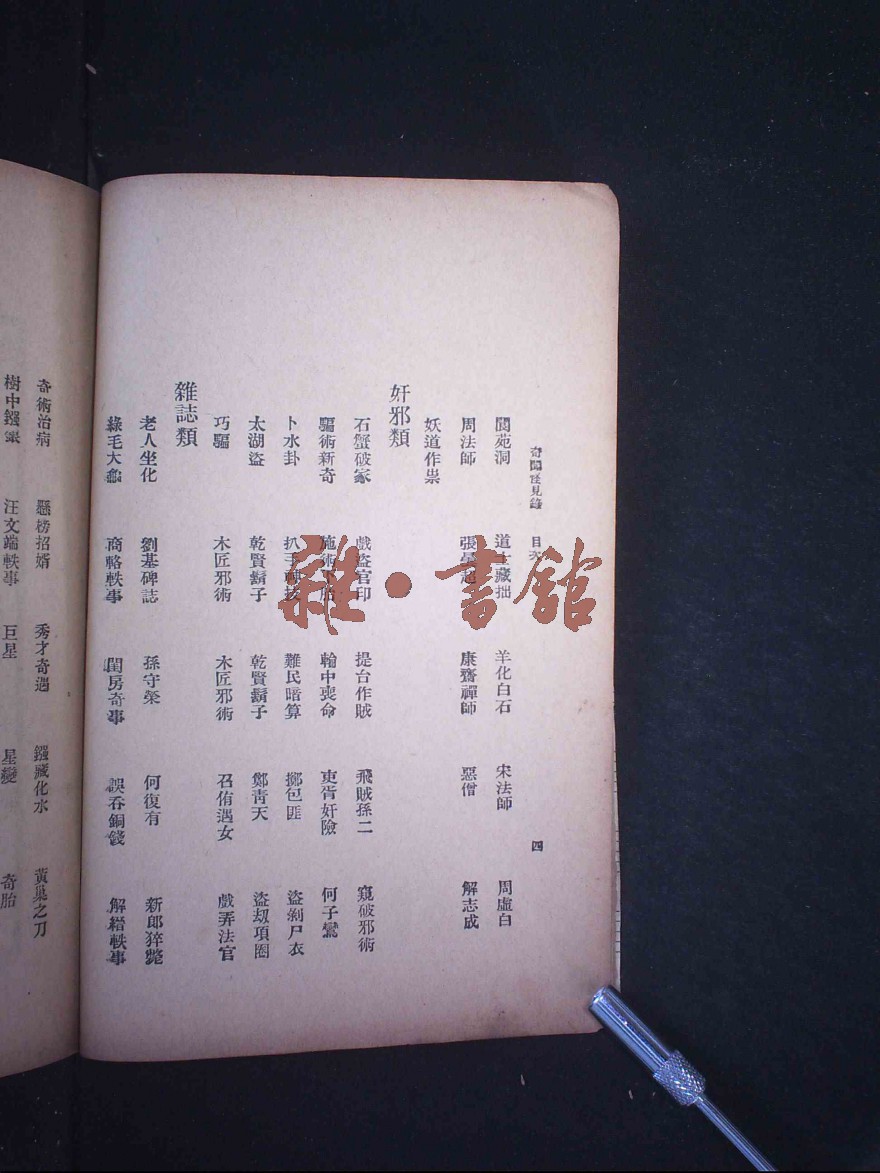 奇聞怪見錄 目次 四
閬苑洞 道士藏拙 羊化白石 宋法師 周虛白
周法師 張 康齋禪師 惡僧 解志成
妖道作祟
奸邪類
石蟹破家 戲盜官印 提台作賊 飛賊孫二 窺破邪術
騙術新奇 施術 輸中喪命 吏胥奸險 何子鸞
卜水卦 扒手 難民暗算 擲包匪 盜剝尸衣
太湖盜 乾賢鬍子 乾賢鬍子 鄭青天 盜刼項圈
巧騙 木匠邪術 木匠邪術 召侑遇女 戲弄法官
雜誌類
老人坐化 劉基碑誌 孫守榮 何復有 新郎猝斃
綠毛大龜 商輅軼事 閨房奇事 誤吞銅錢 解縉軼事
奇術治病 懸榜招婿 秀才奇遇 鏹藏化水 黃巢之刀
樹中鏹銀 汪文端軼事 巨星 星變 奇胎
雜·書館